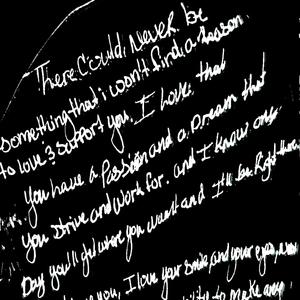 There Could Never be
something that i won't find a reason
to love & support you. I Love that
you have a Passion and a Dream that
you strive and work for. and I know one
Day you'll get where you want and I'll be Right there
you, I love your smile and your eyes,
ability to make any